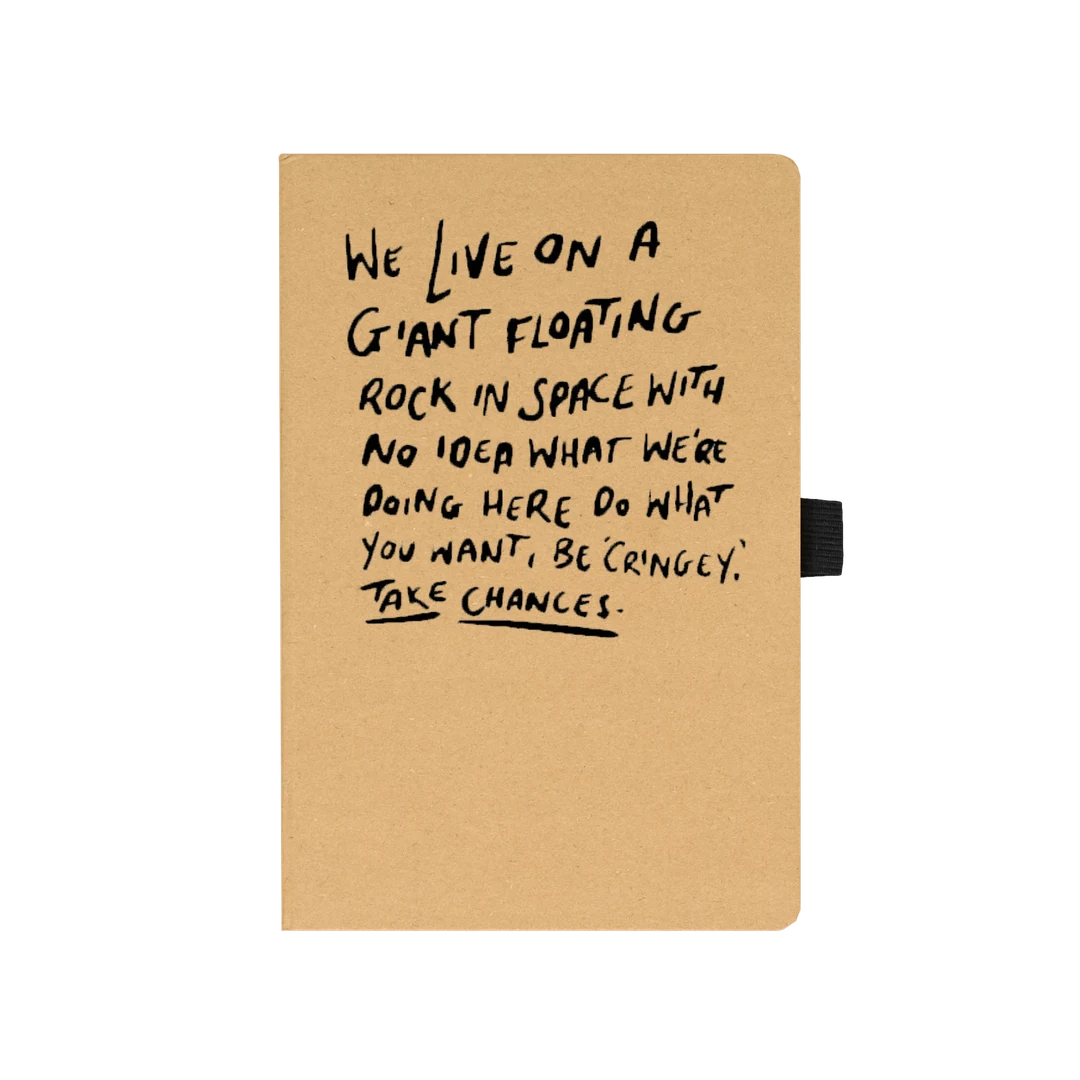 WE LIVE ON A
GIANT FLOATING
ROCK IN SPACE WITH
NO IDEA WHAT WE'RE
DOING HERE DO WHAT
YOU WANT, BE 'CRINGEY.'
TAKE CHANCES.